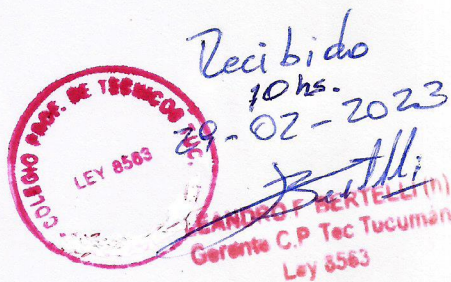 Recibido
10 hs.
29-02-2023
COLEGIO PROF. DE TECNICOS TUC.
LEY 8563
Bertelli
LEANDRO F BERTELLI (h)
Gerente C.P Tec Tucumán
Ley 8563